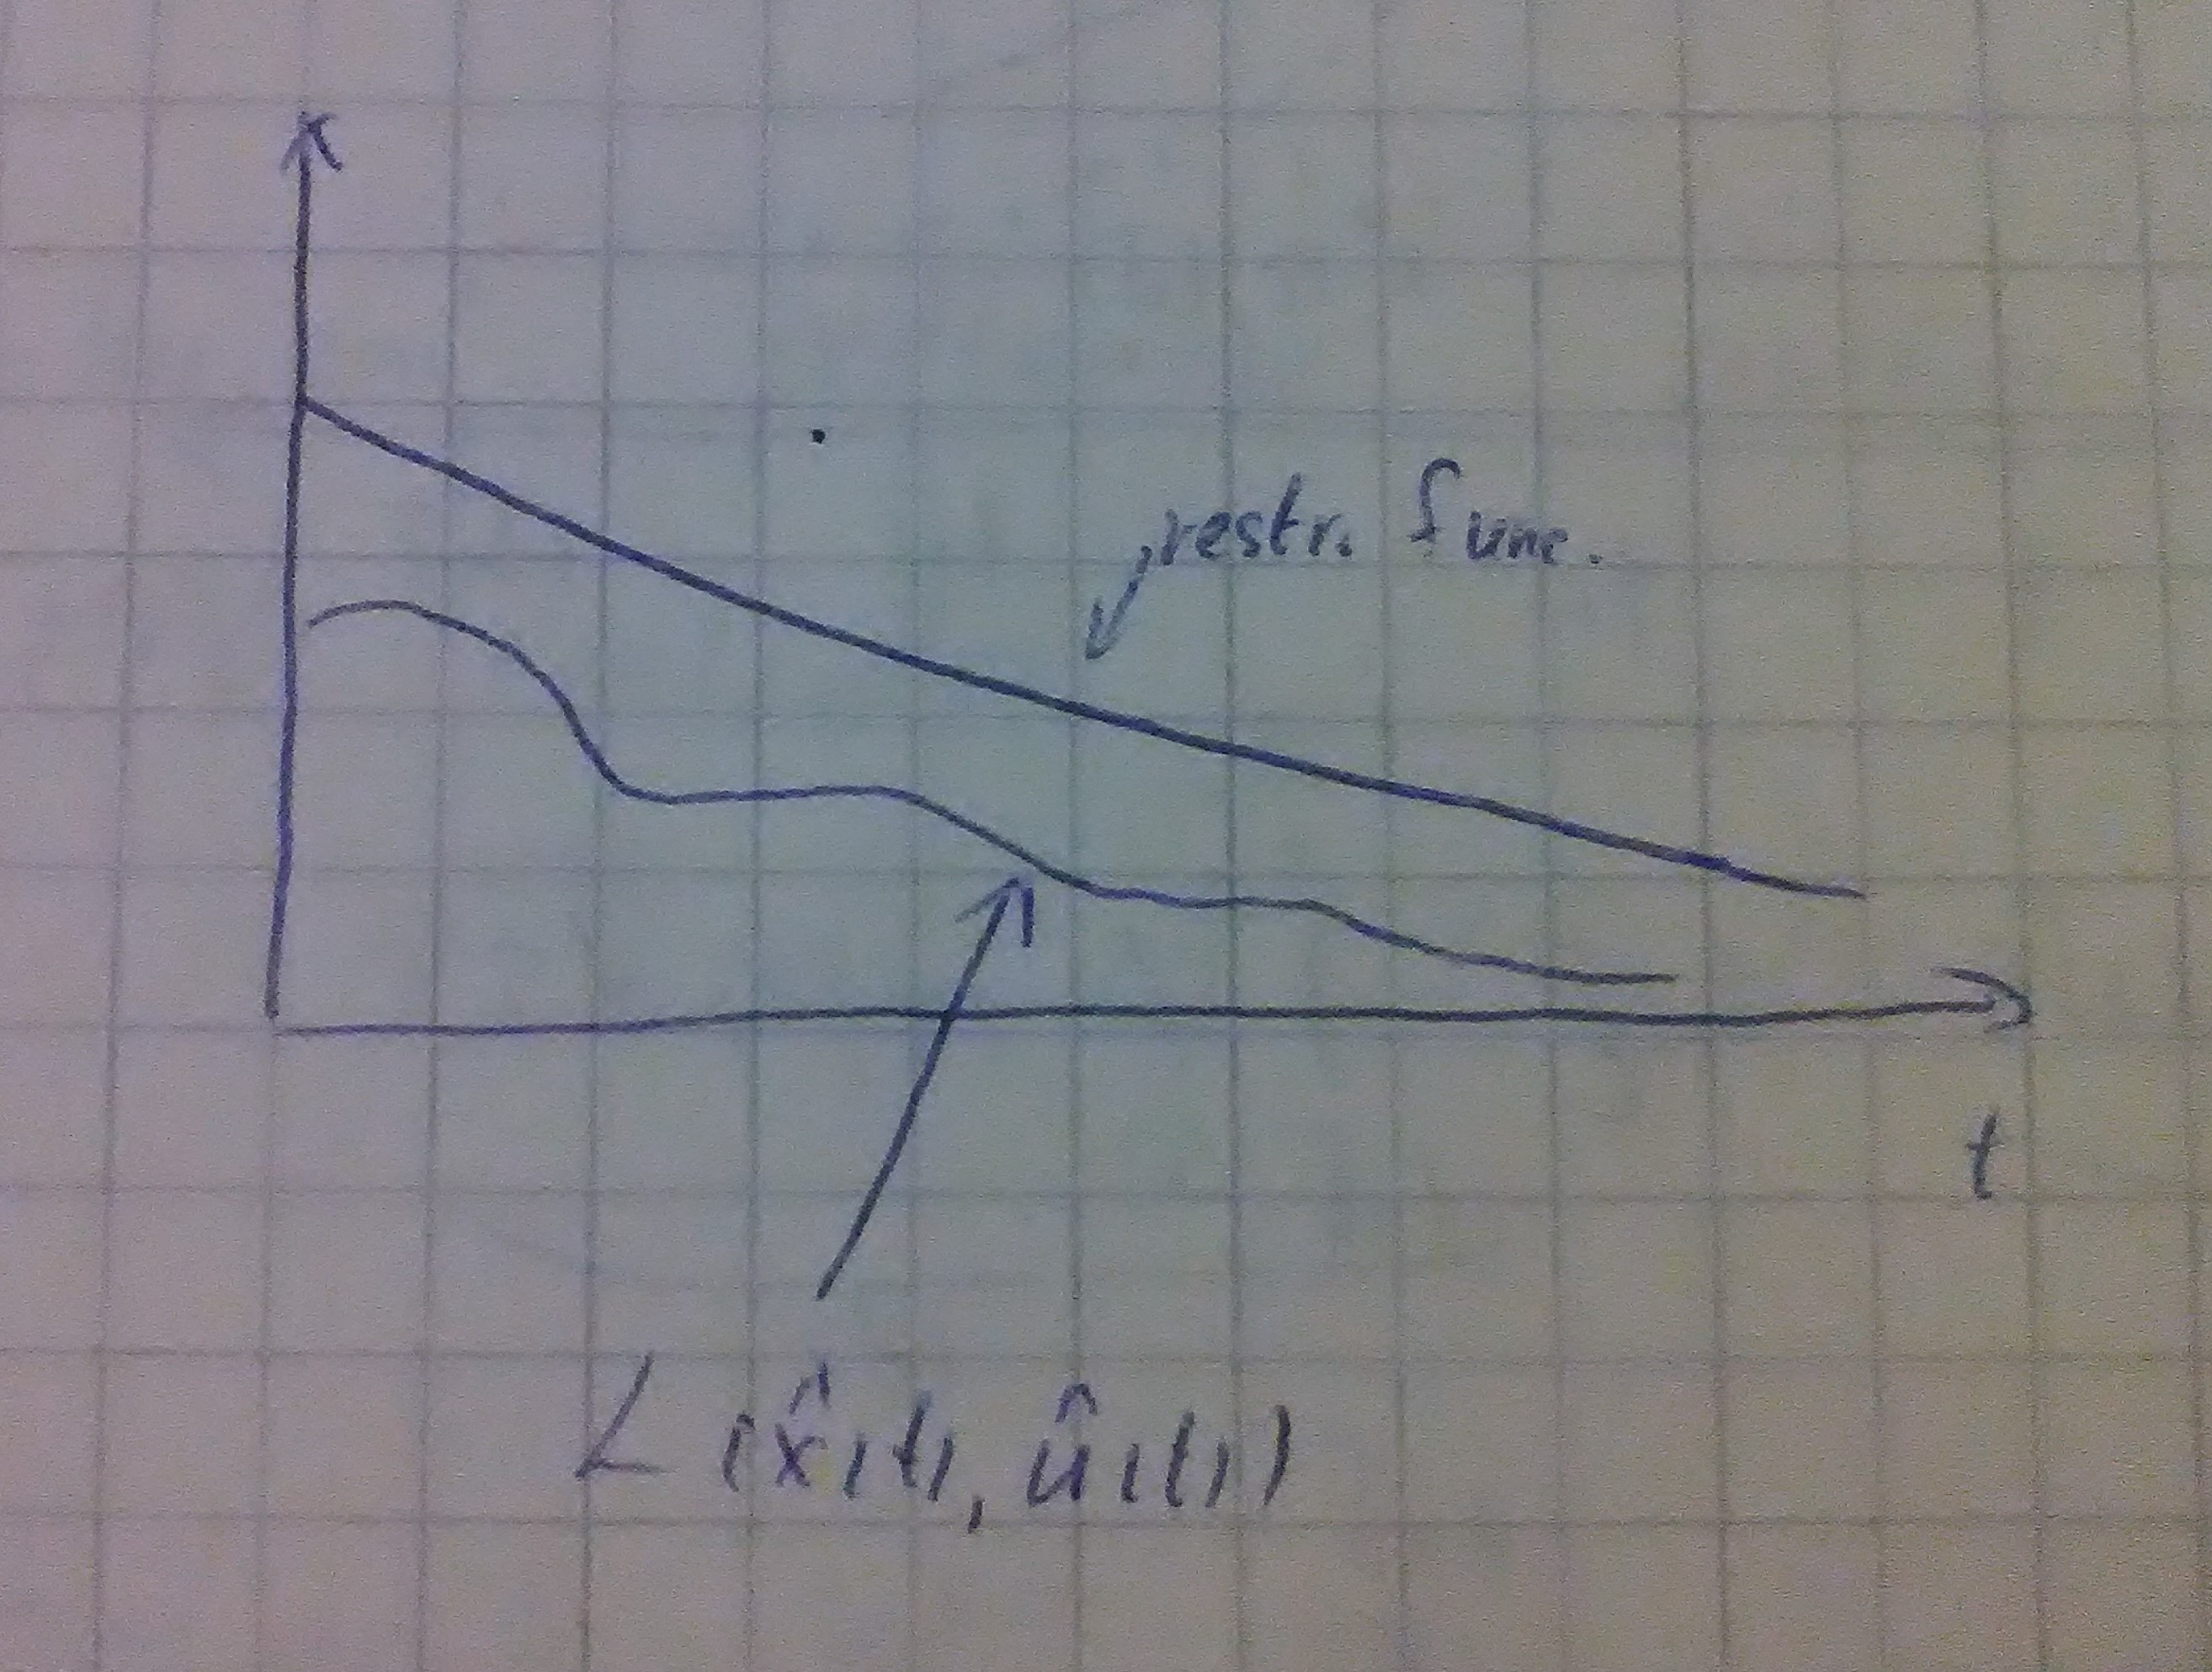 restr. func.
t
L(x̂(t), û(t))